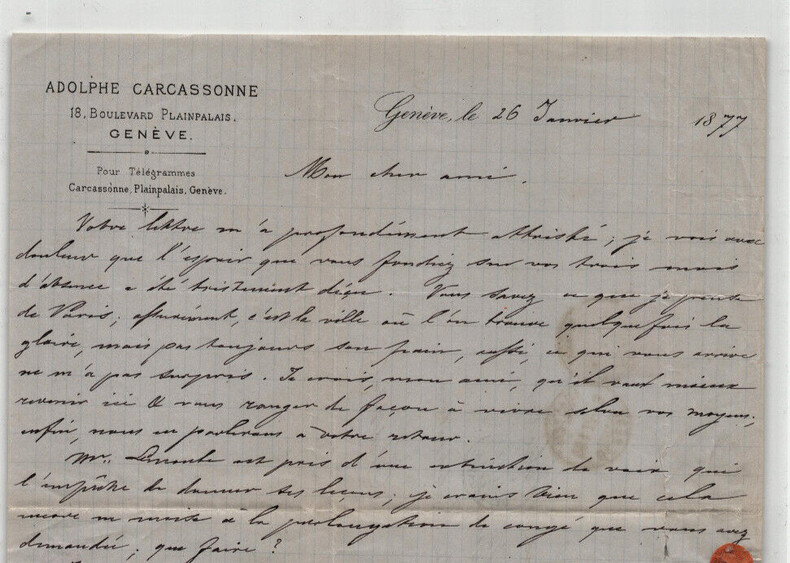 ADOLPHE CARCASSONNE
18, BOULEVARD PLAINPALAIS.
GENÈVE.
Pour Télégrammes
Carcassonne, Plainpalais, Genève.
Genève, le 26 Janvier 1877
Mon cher ami,
Votre lettre m'a profondément attristé ; je vois avec
douleur que l'espoir que vous fondiez sur vos trois mois
d'absence a été tristement déçu. Vous savez ce que je pense
de Paris ; assurément, c'est la ville où l'on trouve quelquefois la
gloire, mais pas toujours son pain, aussi, ce qui vous arrive
ne m'a pas surpris. Je crois, mon ami, qu'il vaut mieux
revenir ici & vous ranger de façon à vivre selon vos moyens ;
enfin, nous en parlerons à votre retour.
Mr. est pris d'une extinction de voix qui
l'empêche de donner ses leçons ; je crains bien que cela
encore ne nuise à la prolongation de congé que vous avez
demandée ; que faire ?